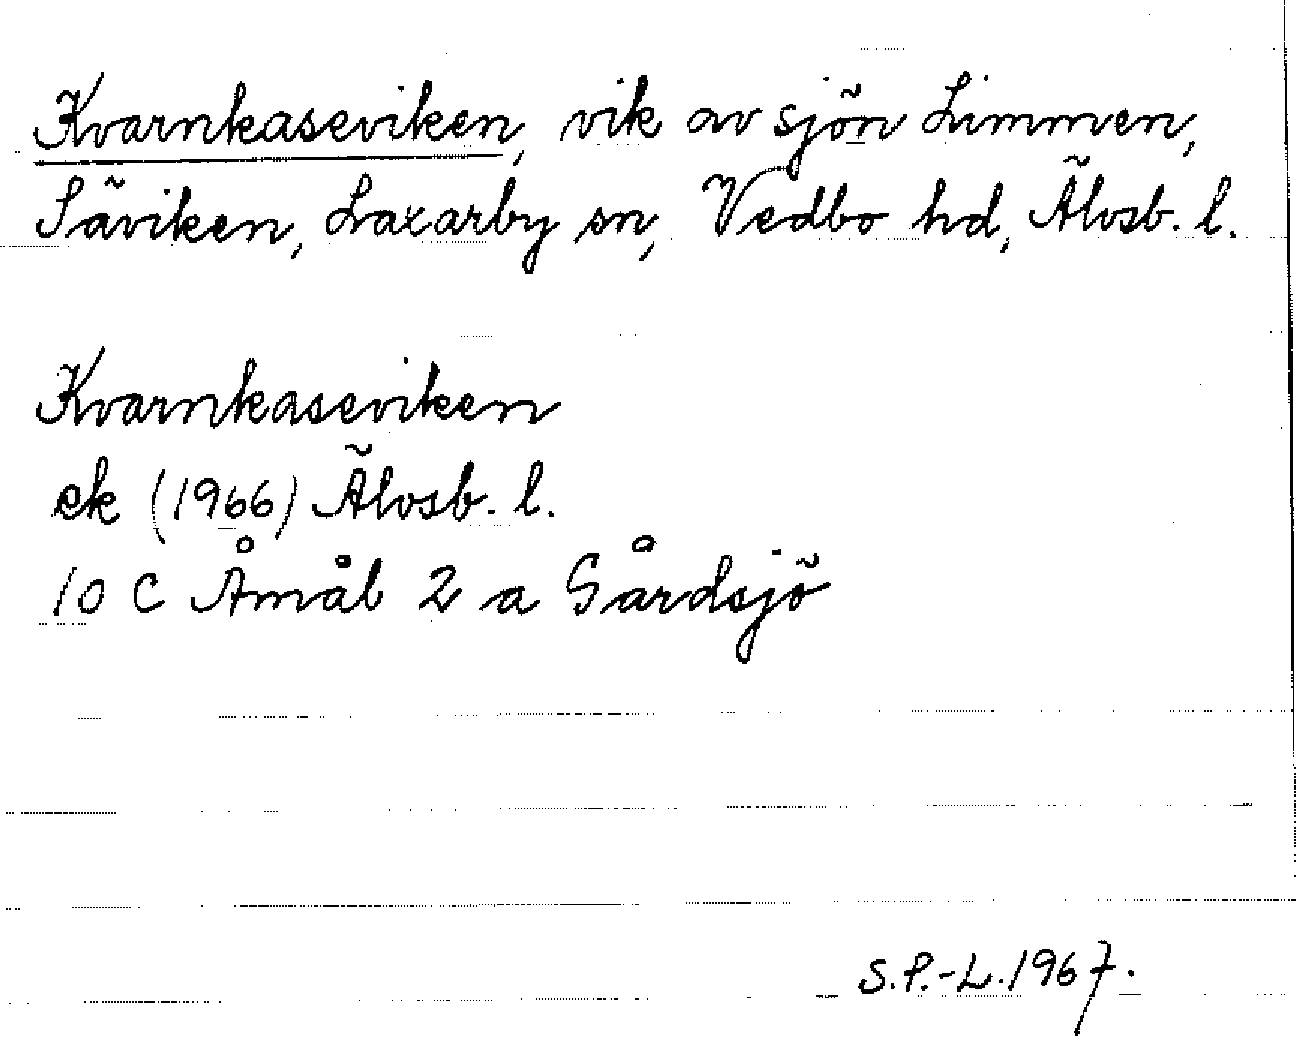 Kvarnkaseviken, vik av sjön Limmven,
Säviken, Laxarby sn, Vedbo hd, Älvsb. l.
Kvarnkaseviken
ek (1966) Älvsb. l.
10 C Åmål 2 a Gårdsjö
S.P.-L. 1967.